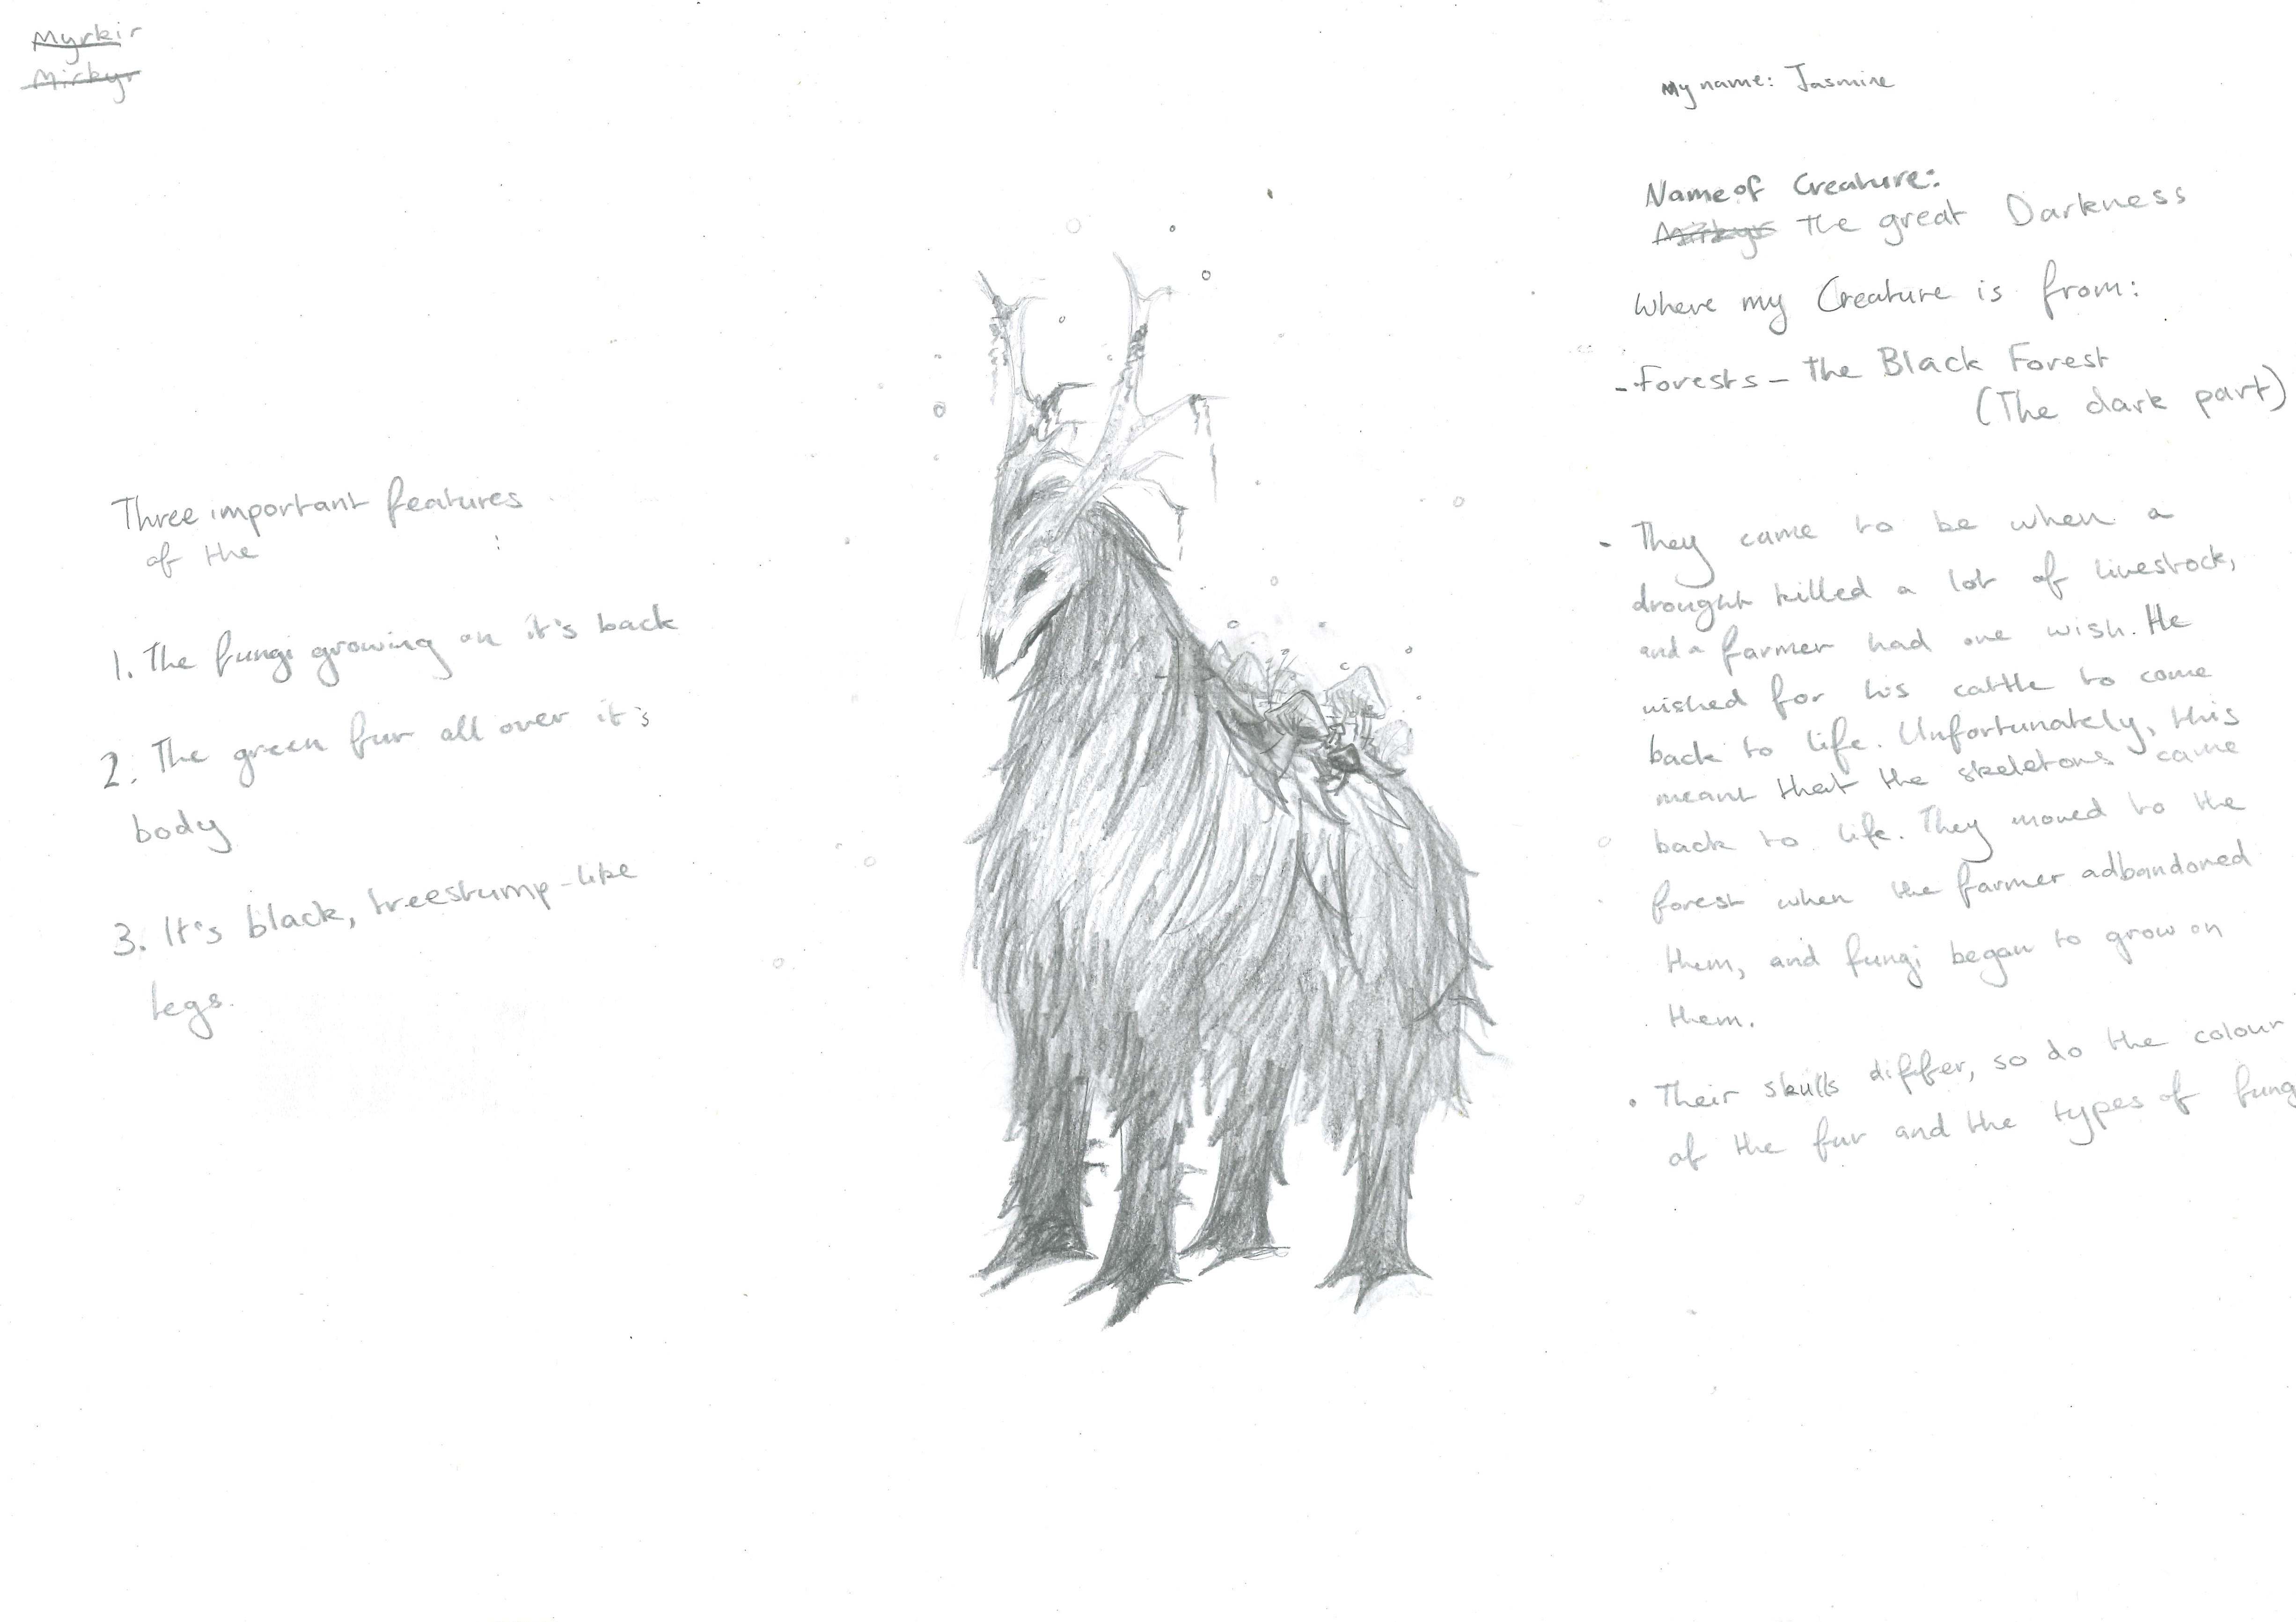 Myrkir
Mirkyr
My name: Jasmine
Name of Creature:
Mirkyr The great Darkness
Where my Creature is from:
- Forests - The Black Forest
(The dark part)
Three important features
of the :
1. The fungi growing on it's back
2. The green fur all over it's
body
3. It's black, treestump-like
legs.
- They came to be when a
drought killed a lot of livestock,
and a farmer had one wish. He
wished for his cattle to come
back to life. Unfortunately, this
meant that the skeletons came
back to life. They moved to the
forest when the farmer adbandoned
them, and fungi began to grow on
them.
• Their skulls differ, so do the colour
of the fur and the types of fung